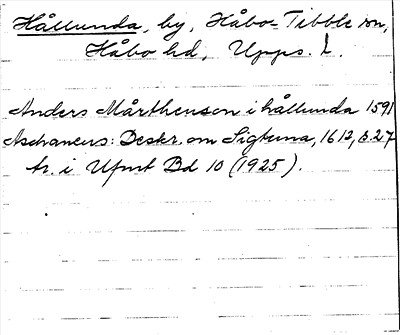 Hållunda, by, Håbo-Tibble sn,
Håbo hd, Upps. L.
Anders Mårthenson i hållunda 1591
Aschaneus: Beskr. om Sigtuna, 1612, s. 27
tr. i Ufmt Bd 10 (1925).